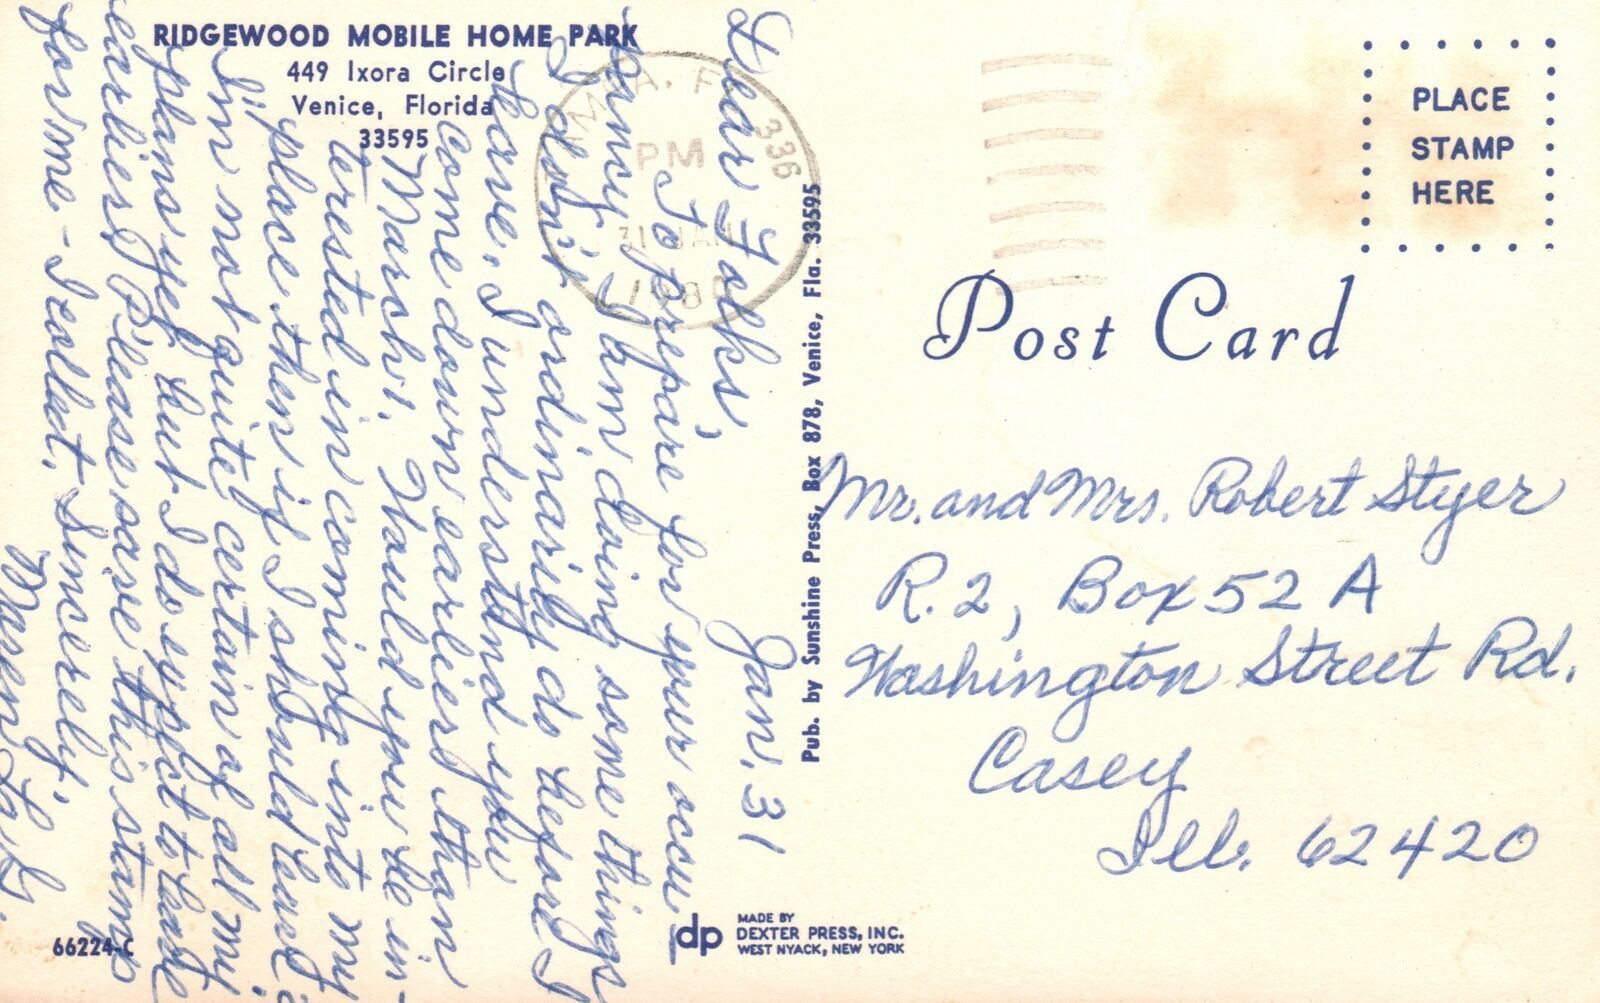 RIDGEWOOD MOBILE HOME PARK
449 Ixora Circle
Venice, Florida
33595
Jan. 31
Dear Folks,
To prepare for your occu
pancy I am doing some things
I don't ordinarily do before I
leave. I understand you
come down earlier than
March 1. Would you be in-
terested in coming into my
place then if I should leave?
I'm not quite certain of all my
plans yet but I do expect to leave
earlier. Please save this stamp
for me - I collect. Sincerely,
PM
31 JAN
336
Pub. by Sunshine Press, Box 878, Venice, Fla. 33595
PLACE
STAMP
HERE
Post Card
Mr. and Mrs. Robert Styer
R. 2, Box 52 A
Washington Street Rd.
Casey
Ill. 62420
66224-C
dp
MADE BY
DEXTER PRESS, INC.
WEST NYACK, NEW YORK